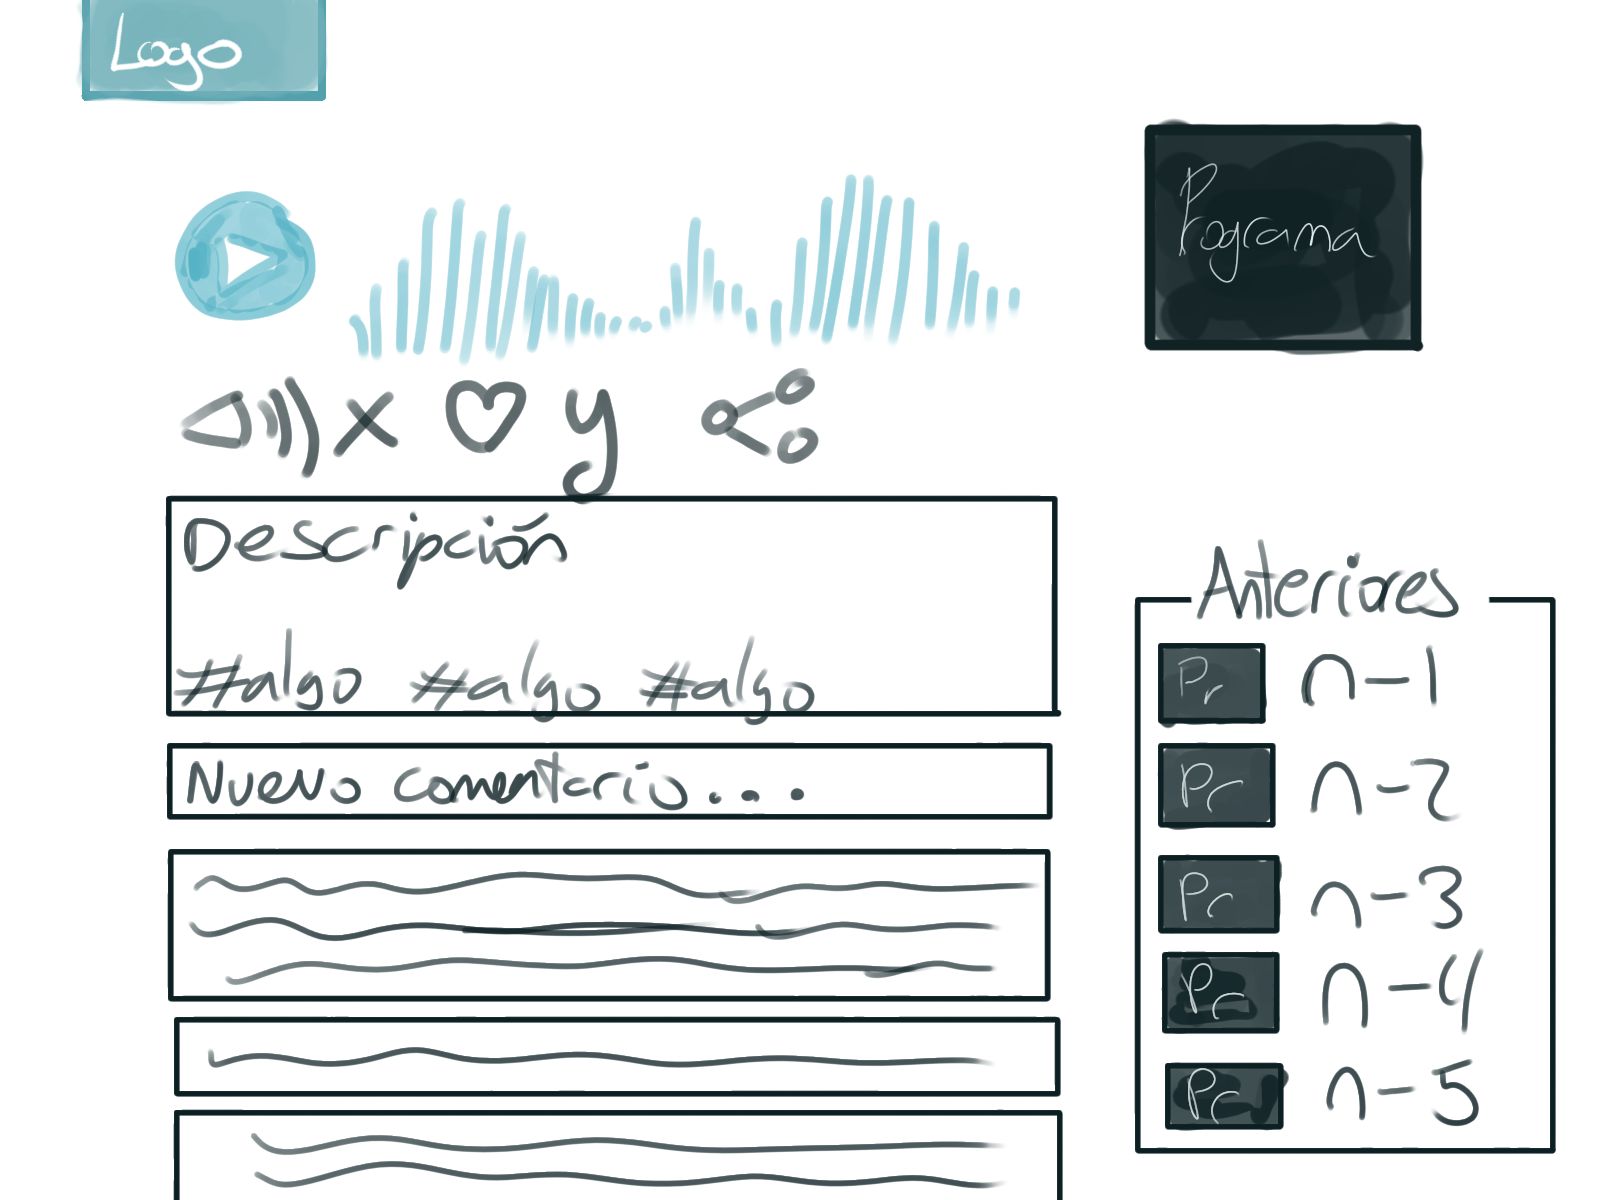 Logo
Programa
x y
Descripción
#algo #algo #algo
Nuevo comentario...
Anteriores
Pr n-1
Pr n-2
Pr n-3
Pr n-4
Pr n-5